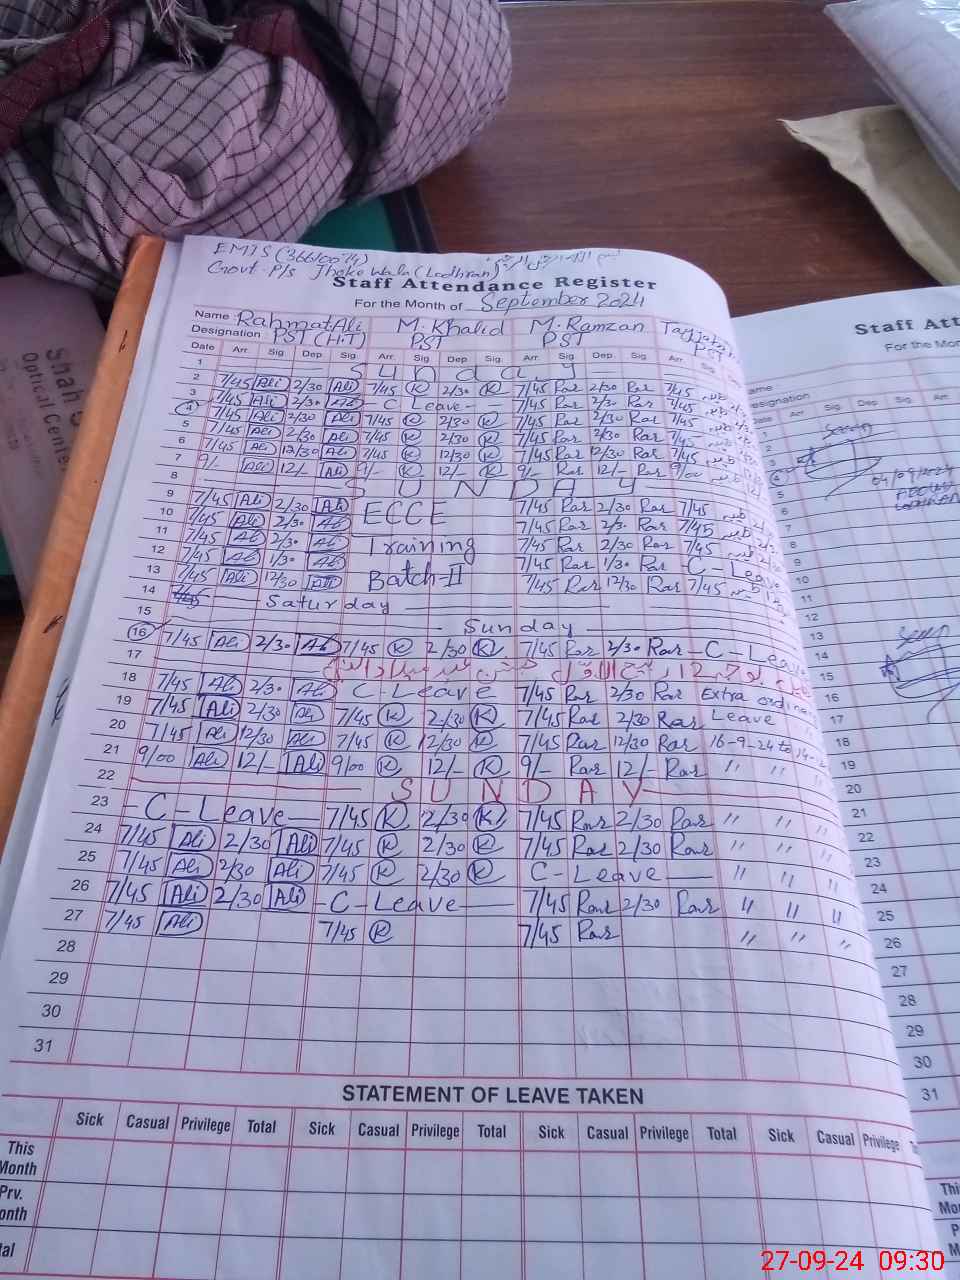 EMIS (36610074)
Govt. P/s Jhoke Wala (Lodhran)
Staff Attendance Register
For the Month of September 2024
Name Rahmat Ali M. Khalid M. Ramzan
Designation PST (H.T) PST PST PST
Date Arr. Sig Dep Sig. Arr. Sig. Dep Sig. Arr. Sig. Dep. Sig. Arr. Sig
1 Sunday
2 7/45 Ali 2/30 Ali 7/45 K 2/30 K 7/45 Rar 2/30 Rar 7/45
3 7/45 Ali 2/30 Ali - C Leave - 7/45 Rar 2/30 Rar 7/45
4 7/45 Ali 2/30 Ali 7/45 K 2/30 K 7/45 Rar 2/30 Rar 7/45
5 7/45 Ali 2/30 Ali 7/45 K 2/30 K 7/45 Rar 2/30 Rar 7/45
6 7/45 Ali 12/30 Ali 7/45 K 12/30 K 7/45 Rar 12/30 Rar 7/45
7 9/- Ali 12/- Ali 9/- K 12/- K 9/- Rar 12/- Rar 9/00
8 SUNDAY
9 7/45 Ali 2/30 Ali ECCE 7/45 Rar 2/30 Rar 7/45
10 7/45 Ali 2/30 Ali 7/45 Rar 2/30 Rar 7/45
11 7/45 Ali 2/30 Ali Training 7/45 Rar 2/30 Rar 7/45
12 7/45 Ali 1/30 Ali 7/45 Rar 1/30 Rar -C-Leave
13 7/45 Ali 12/30 Ali Batch-II 7/45 Rar 12/30 Rar 7/45
14 Saturday
15 Sunday
16 7/45 Ali 2/30 Ali 7/45 K 2/30 K 7/45 Rar 2/30 Rar -C-Leave
17
18 7/45 Ali 2/30 Ali C-Leave 7/45 Rar 2/30 Rar Extra ordinary
19 7/45 Ali 2/30 Ali 7/45 K 2/30 K 7/45 Rar 2/30 Rar Leave
20 7/45 Ali 12/30 Ali 7/45 K 12/30 K 7/45 Rar 12/30 Rar 16-9-24 to
21 9/00 Ali 12/- Ali 9/00 K 12/- K 9/- Rar 12/- Rar " "
22 SUNDAY
23 -C-Leave- 7/45 K 12/30 K 7/45 Rar 2/30 Rar " " "
24 7/45 Ali 2/30 Ali 7/45 K 2/30 K 7/45 Rar 2/30 Rar " " "
25 7/45 Ali 2/30 Ali 7/45 K 2/30 K C-Leave " " "
26 7/45 Ali 2/30 Ali -C-Leave- 7/45 Rar 2/30 Rar " " "
27 7/45 Ali 7/45 K 7/45 Rar " " "
28
29
30
31
STATEMENT OF LEAVE TAKEN
Sick Casual Privilege Total Sick Casual Privilege Total Sick Casual Privilege Total Sick Casual Privilege
This Month
Prv.
Staff Att
For the Mon
Date Arr Sig Dep Sig. Arr.
1
2
3
4
5 04/09/2024
6
7
8
9
10
11
12
13
14
15
16
17
18
19
20
21
22
23
24
25
26
27
28
29
30
31
Shah
Optical Center
27-09-24 09:30